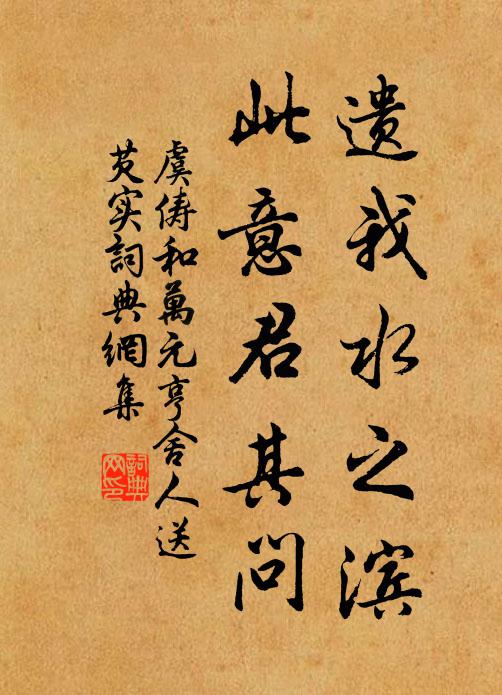 遗我水之滨
此意君其问
虞俦和萬元亨舍人送
芡实詞典網集
詞典网印